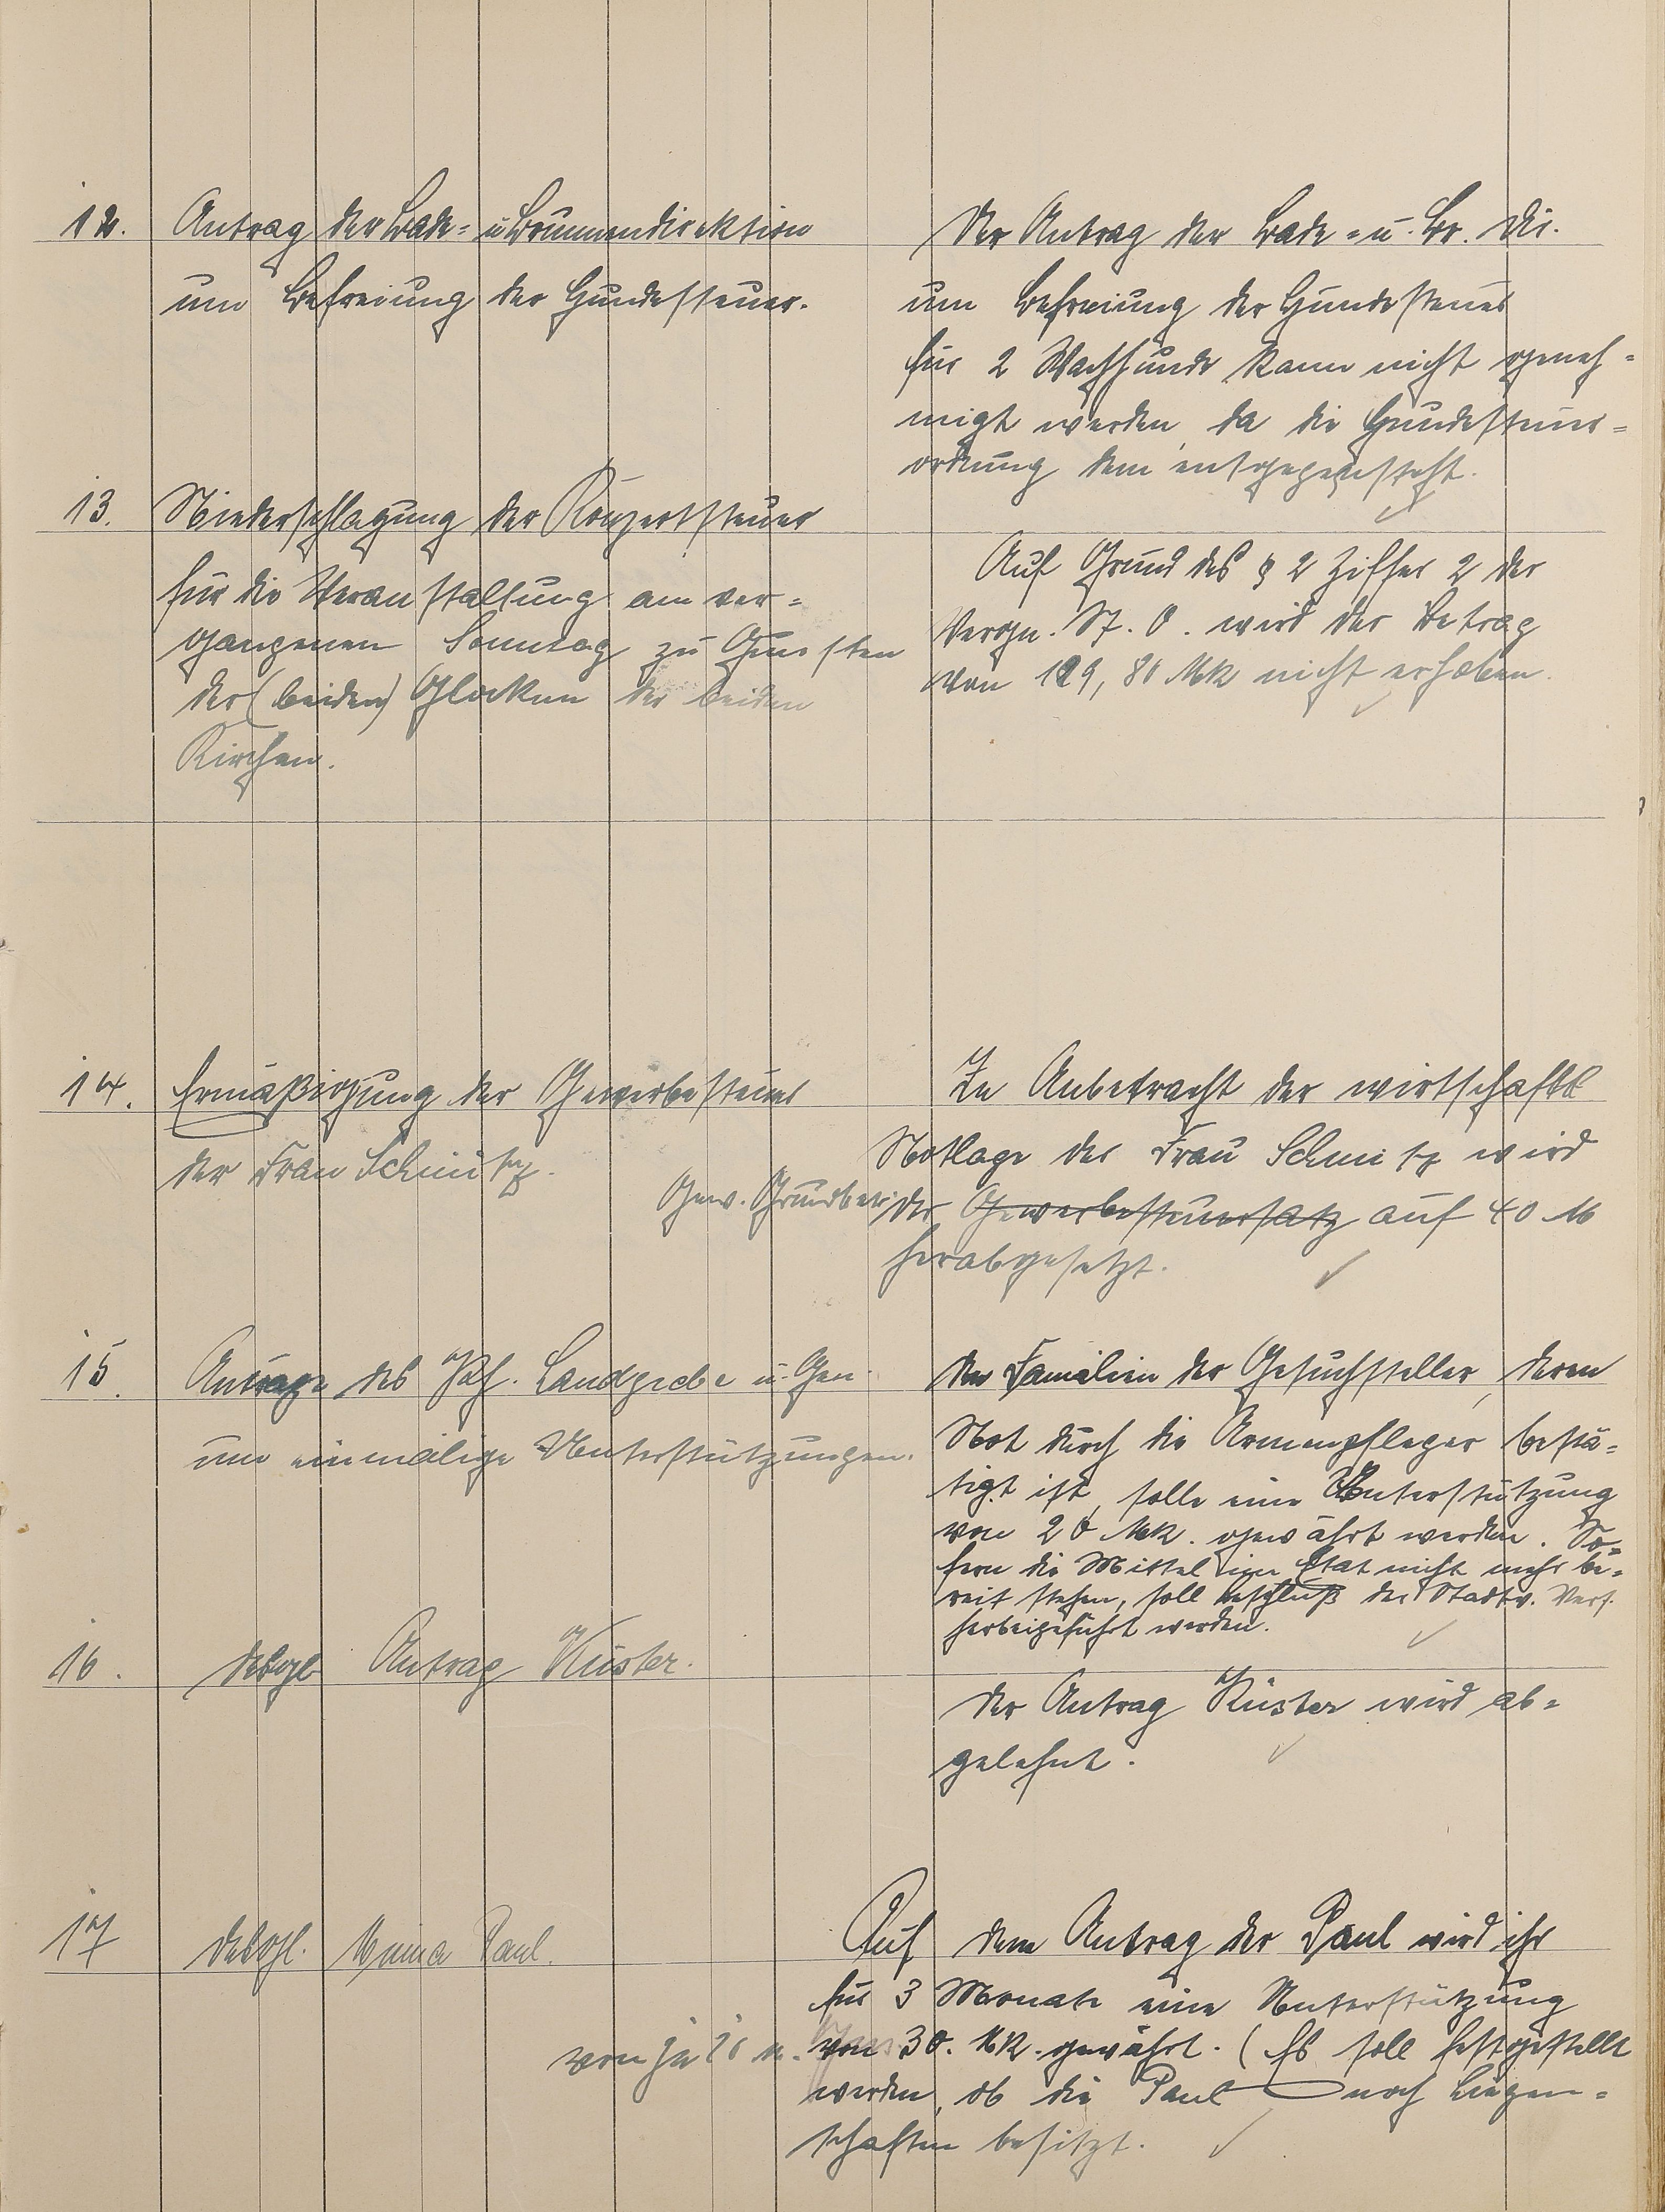 12. Antrag der Bade- u Brunnendirektion
um Befreiung der Hundesteuer.
Der Antrag der Bade- u. Br. Di.
um Befreiung der Hundesteuer
für 2 Wachhunde kann nicht geneh-
migt werden, da die Hundesteuer-
ordnung dem entgegensteht.
13. Niederschlagung der Konzertsteuer
für die Veranstaltung am ver-
gangenen Sonntag zu Gunsten
der (beiden) Glocken der beiden
Kirchen.
Auf Grund des § 2 Ziffer 2 der
Vergn. St. O. wird der Betrag
von 129,80 Mk nicht erhoben.
14. Ermäßigung der Gewerbesteuer
der Frau Schmitz.
In Anbetracht der wirtschaftl
Notlage der Frau Schmitz wird
Gew. Grundbetr. der Gewerbesteuersatz auf 40 M
herabgesetzt.
15. Anträge des Landgrebe u. Gen
um einmalige Unterstützungen.
den Familien der Gesuchsteller, deren
Not durch die Armenpfleger bestä-
tigt ist, solle eine Unterstützung
von 20 Mk. gewährt werden. So-
fern die Mittel im Etat nicht mehr be-
reit stehen, soll Beschluß der Stadtv. Vers.
herbeigeführt werden.
16. desgl Antrag Küster.
der Antrag Küster wird ab-
gelehnt.
17 desgl. Minna Paul.
Auf dem Antrag der Paul wird ihr
für 3 Monate eine Unterstützung
von je von 30. Mk. gewährt. (Es soll festgestellt
werden, ob die Paul noch Liegen-
schaften besitzt.